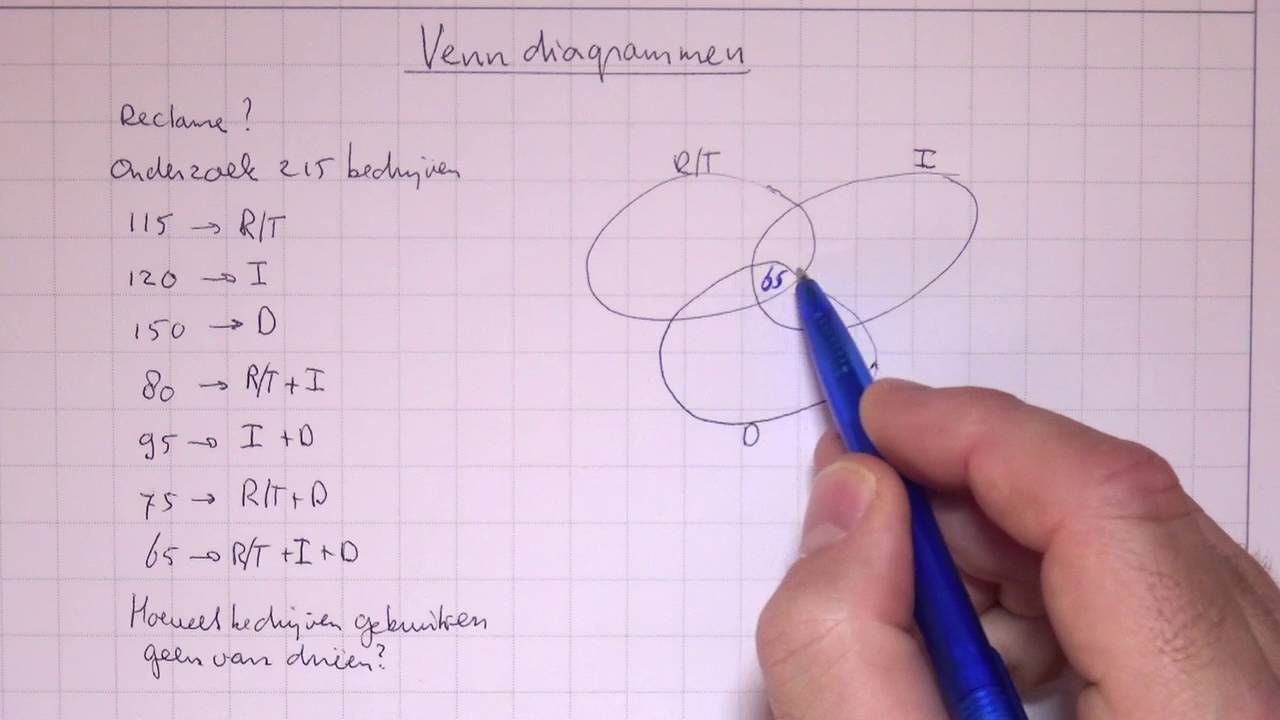 Venn diagrammen
Reclame?
Onderzoek 215 bedrijven
115 → R/T
120 → I
150 → D
80 → R/T + I
95 → I + D
75 → R/T + D
65 → R/T + I + D
Hoeveel bedrijven gebruiken
geen van drieën?
R/T
I
65
D